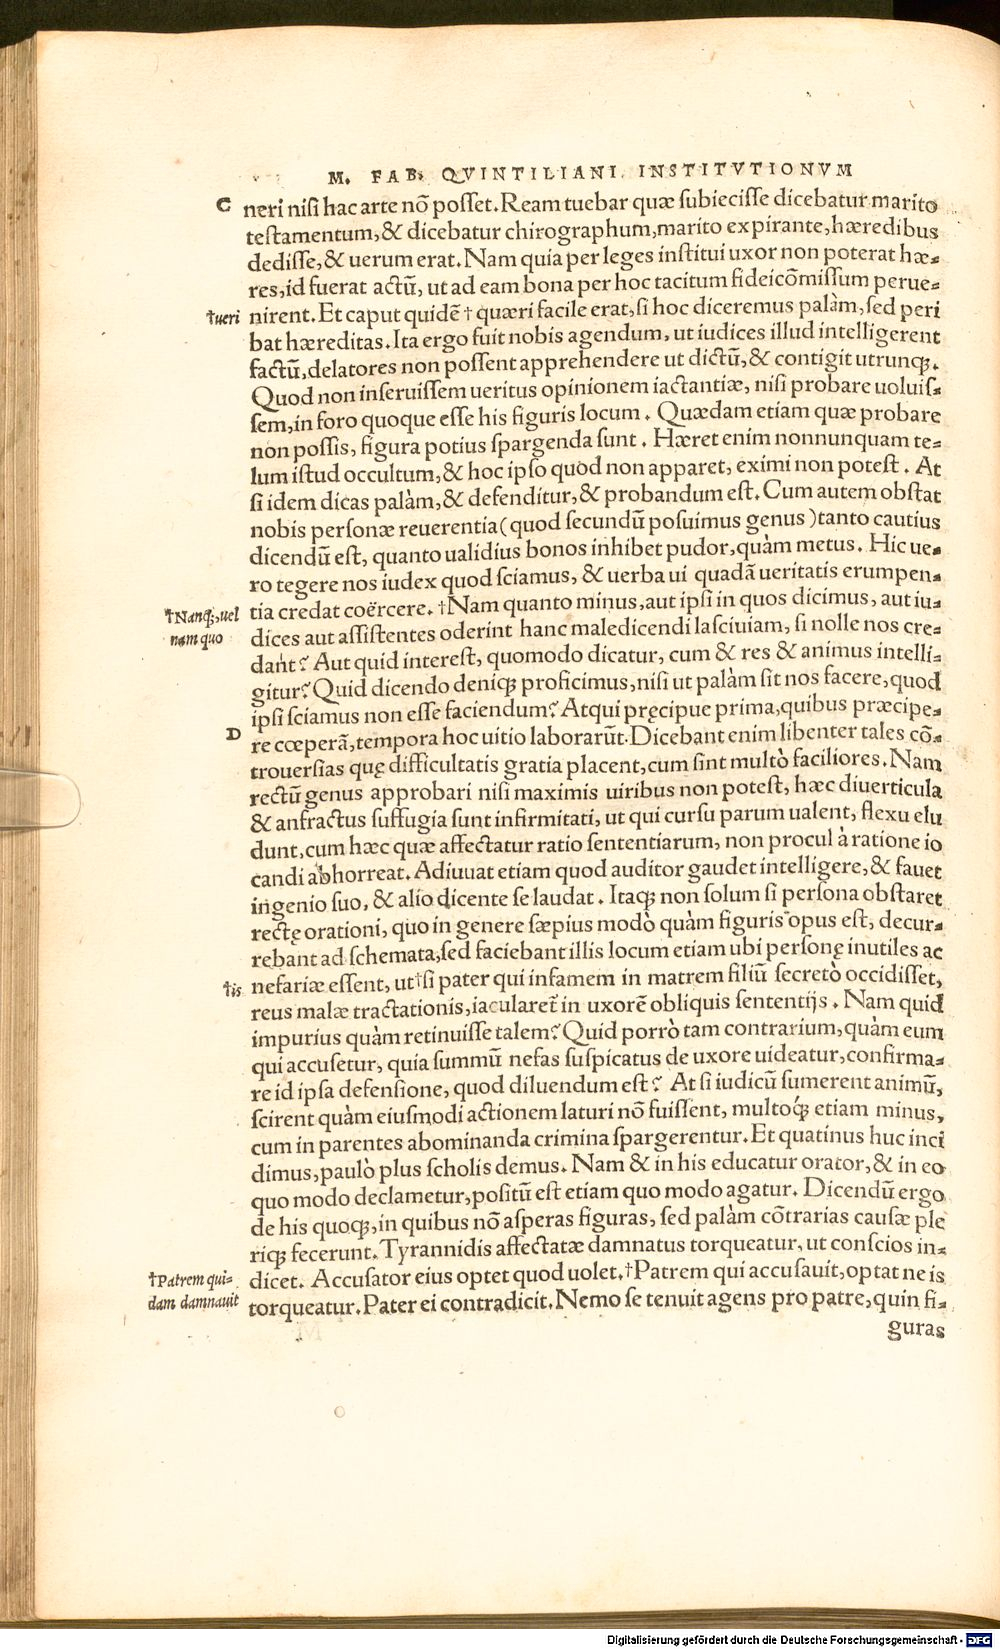 M. FAB. QVINTILIANI. INSTITVTIONVM
C neri nisi hac arte nõ posset. Ream tuebar quæ subiecisse dicebatur marito
testamentum, & dicebatur chirographum, marito expirante, hæredibus
dedisse, & uerum erat. Nam quia per leges institui uxor non poterat hæ-
res, id fuerat actũ, ut ad eam bona per hoc tacitum fideicõmissum perue-
†ueri nirent. Et caput quidẽ † quæri facile erat, si hoc diceremus palàm, sed peri
bat hæreditas. Ita ergo fuit nobis agendum, ut iudices illud intelligerent
factũ, delatores non possent apprehendere ut dictũ, & contigit utrunq;.
Quod non inseruissem ueritus opinionem iactantiæ, nisi probare uoluis-
sem, in foro quoque esse his figuris locum. Quædam etiam quæ probare
non possis, figura potius spargenda sunt. Hæret enim nonnunquam te-
lum istud occultum, & hoc ipso quod non apparet, eximi non potest. At
si idem dicas palàm, & defenditur, & probandum est. Cum autem obstat
nobis personæ reuerentia (quod secundũ posuimus genus) tanto cautius
dicendũ est, quanto ualidius bonos inhibet pudor, quàm metus. Hic ue-
ro tegere nos iudex quod sciamus, & uerba ui quadã ueritatis erumpen-
†Nanq;, uel tia credat coërcere. †Nam quanto minus, aut ipsi in quos dicimus, aut iu-
nam quo dices aut assistentes oderint hanc maledicendi lasciuiam, si nolle nos cre-
dant? Aut quid interest, quomodo dicatur, cum & res & animus intelli-
gitur? Quid dicendo deniq; proficimus, nisi ut palàm sit nos facere, quod
ipsi sciamus non esse faciendum? Atqui pręcipue prima, quibus præcipe-
D re cœperã, tempora hoc uitio laborarũt. Dicebant enim libenter tales cõ-
trouersias quę difficultatis gratia placent, cum sint multò faciliores. Nam
rectũ genus approbari nisi maximis uiribus non potest, hæc diuerticula
& anfractus suffugia sunt infirmitati, ut qui cursu parum ualent, flexu elu
dunt, cum hæc quæ affectatur ratio sententiarum, non procul à ratione io
candi abhorreat. Adiuuat etiam quod auditor gaudet intelligere, & fauet
ingenio suo, & alio dicente se laudat. Itaq; non solum si persona obstaret
rectę orationi, quo in genere sæpius modò quàm figuris opus est, decur-
rebant ad schemata, sed faciebant illis locum etiam ubi personę inutiles ac
†is nefariæ essent, ut †si pater qui infamem in matrem filiũ secretò occidisset,
reus malæ tractationis, iacularet̃ in uxorẽ obliquis sententijs. Nam quid
impurius quàm retinuisse talem? Quid porrò tam contrarium, quàm eum
qui accusetur, quia summũ nefas suspicatus de uxore uideatur, confirma-
re id ipsa defensione, quod diluendum est? At si iudicũ sumerent animũ,
scirent quàm eiusmodi actionem laturi nõ fuissent, multoq́; etiam minus,
cum in parentes abominanda crimina spargerentur. Et quatinus huc inci
dimus, paulò plus scholis demus. Nam & in his educatur orator, & in eo
quo modo declametur, positũ est etiam quo modo agatur. Dicendũ ergo
de his quoq;, in quibus nõ asperas figuras, sed palàm cõtrarias causæ ple
riq; fecerunt. Tyrannidis affectatæ damnatus torqueatur, ut conscios in-
†Patrem qui- dicet. Accusator eius optet quod uolet. †Patrem qui accusauit, optat ne is
dam damnauit torqueatur. Pater ei contradicit. Nemo se tenuit agens pro patre, quin fi-
guras
Digitalisierung gefördert durch die Deutsche Forschungsgemeinschaft - DFG